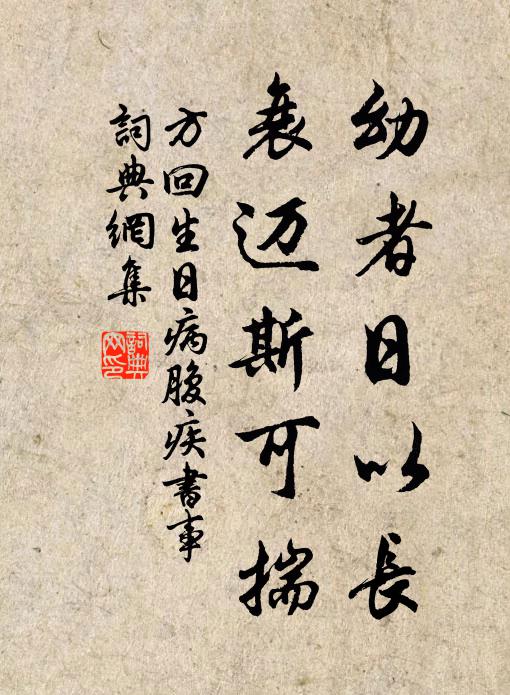 幼者日以長
衰迈斯可揣
方回生日病腹疾書事
詞典網集
詞典
网印